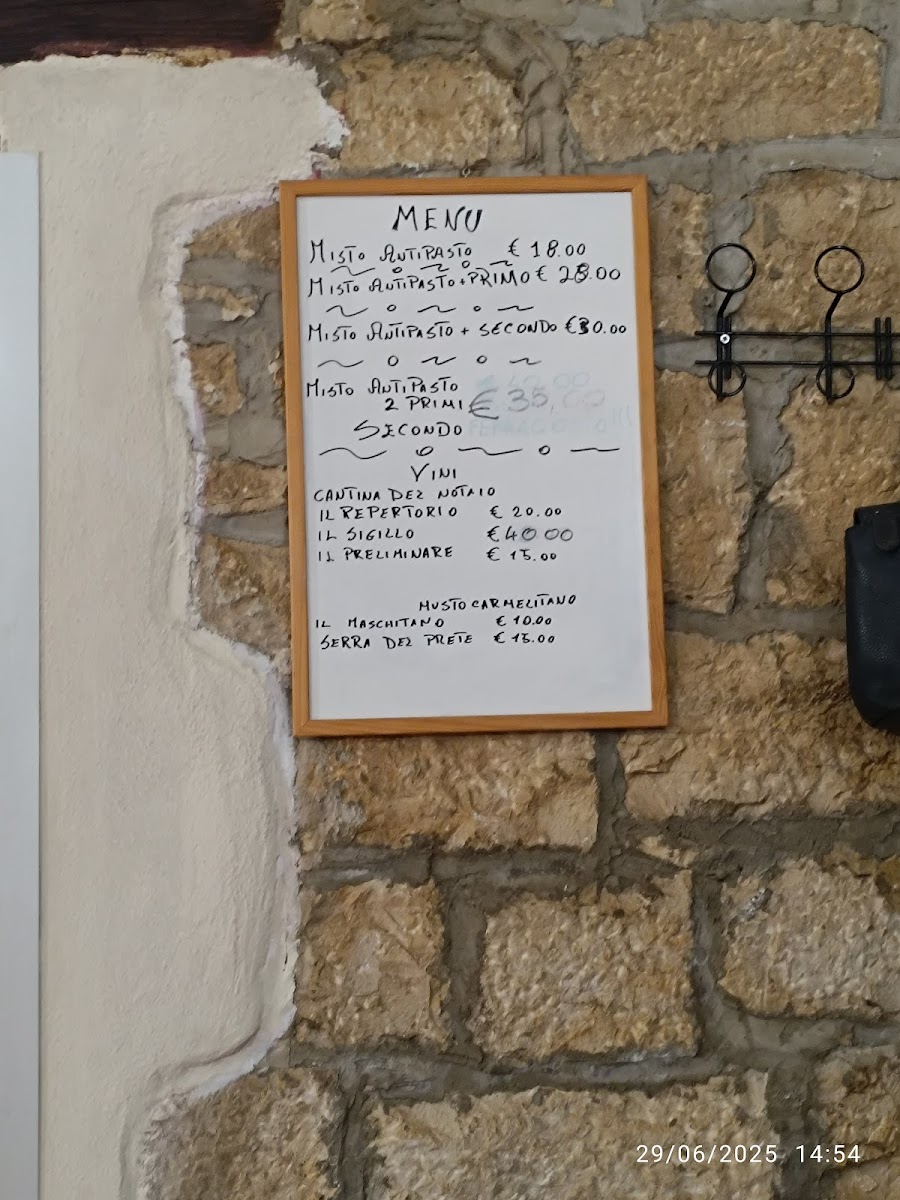 MENU
MISTO ANTIPASTO € 18.00
MISTO ANTIPASTO + PRIMO € 28.00
MISTO ANTIPASTO + SECONDO € 30.00
MISTO ANTIPASTO
2 PRIMI € 35,00
SECONDO
VINI
CANTINA DEL NOTAIO
IL REPERTORIO € 20.00
IL SIGILLO € 40.00
IL PRELIMINARE € 15.00
MUSTO CARMELITANO
IL MASCHITANO € 10.00
SERRA DEL PRETE € 15.00
29/06/2025 14:54